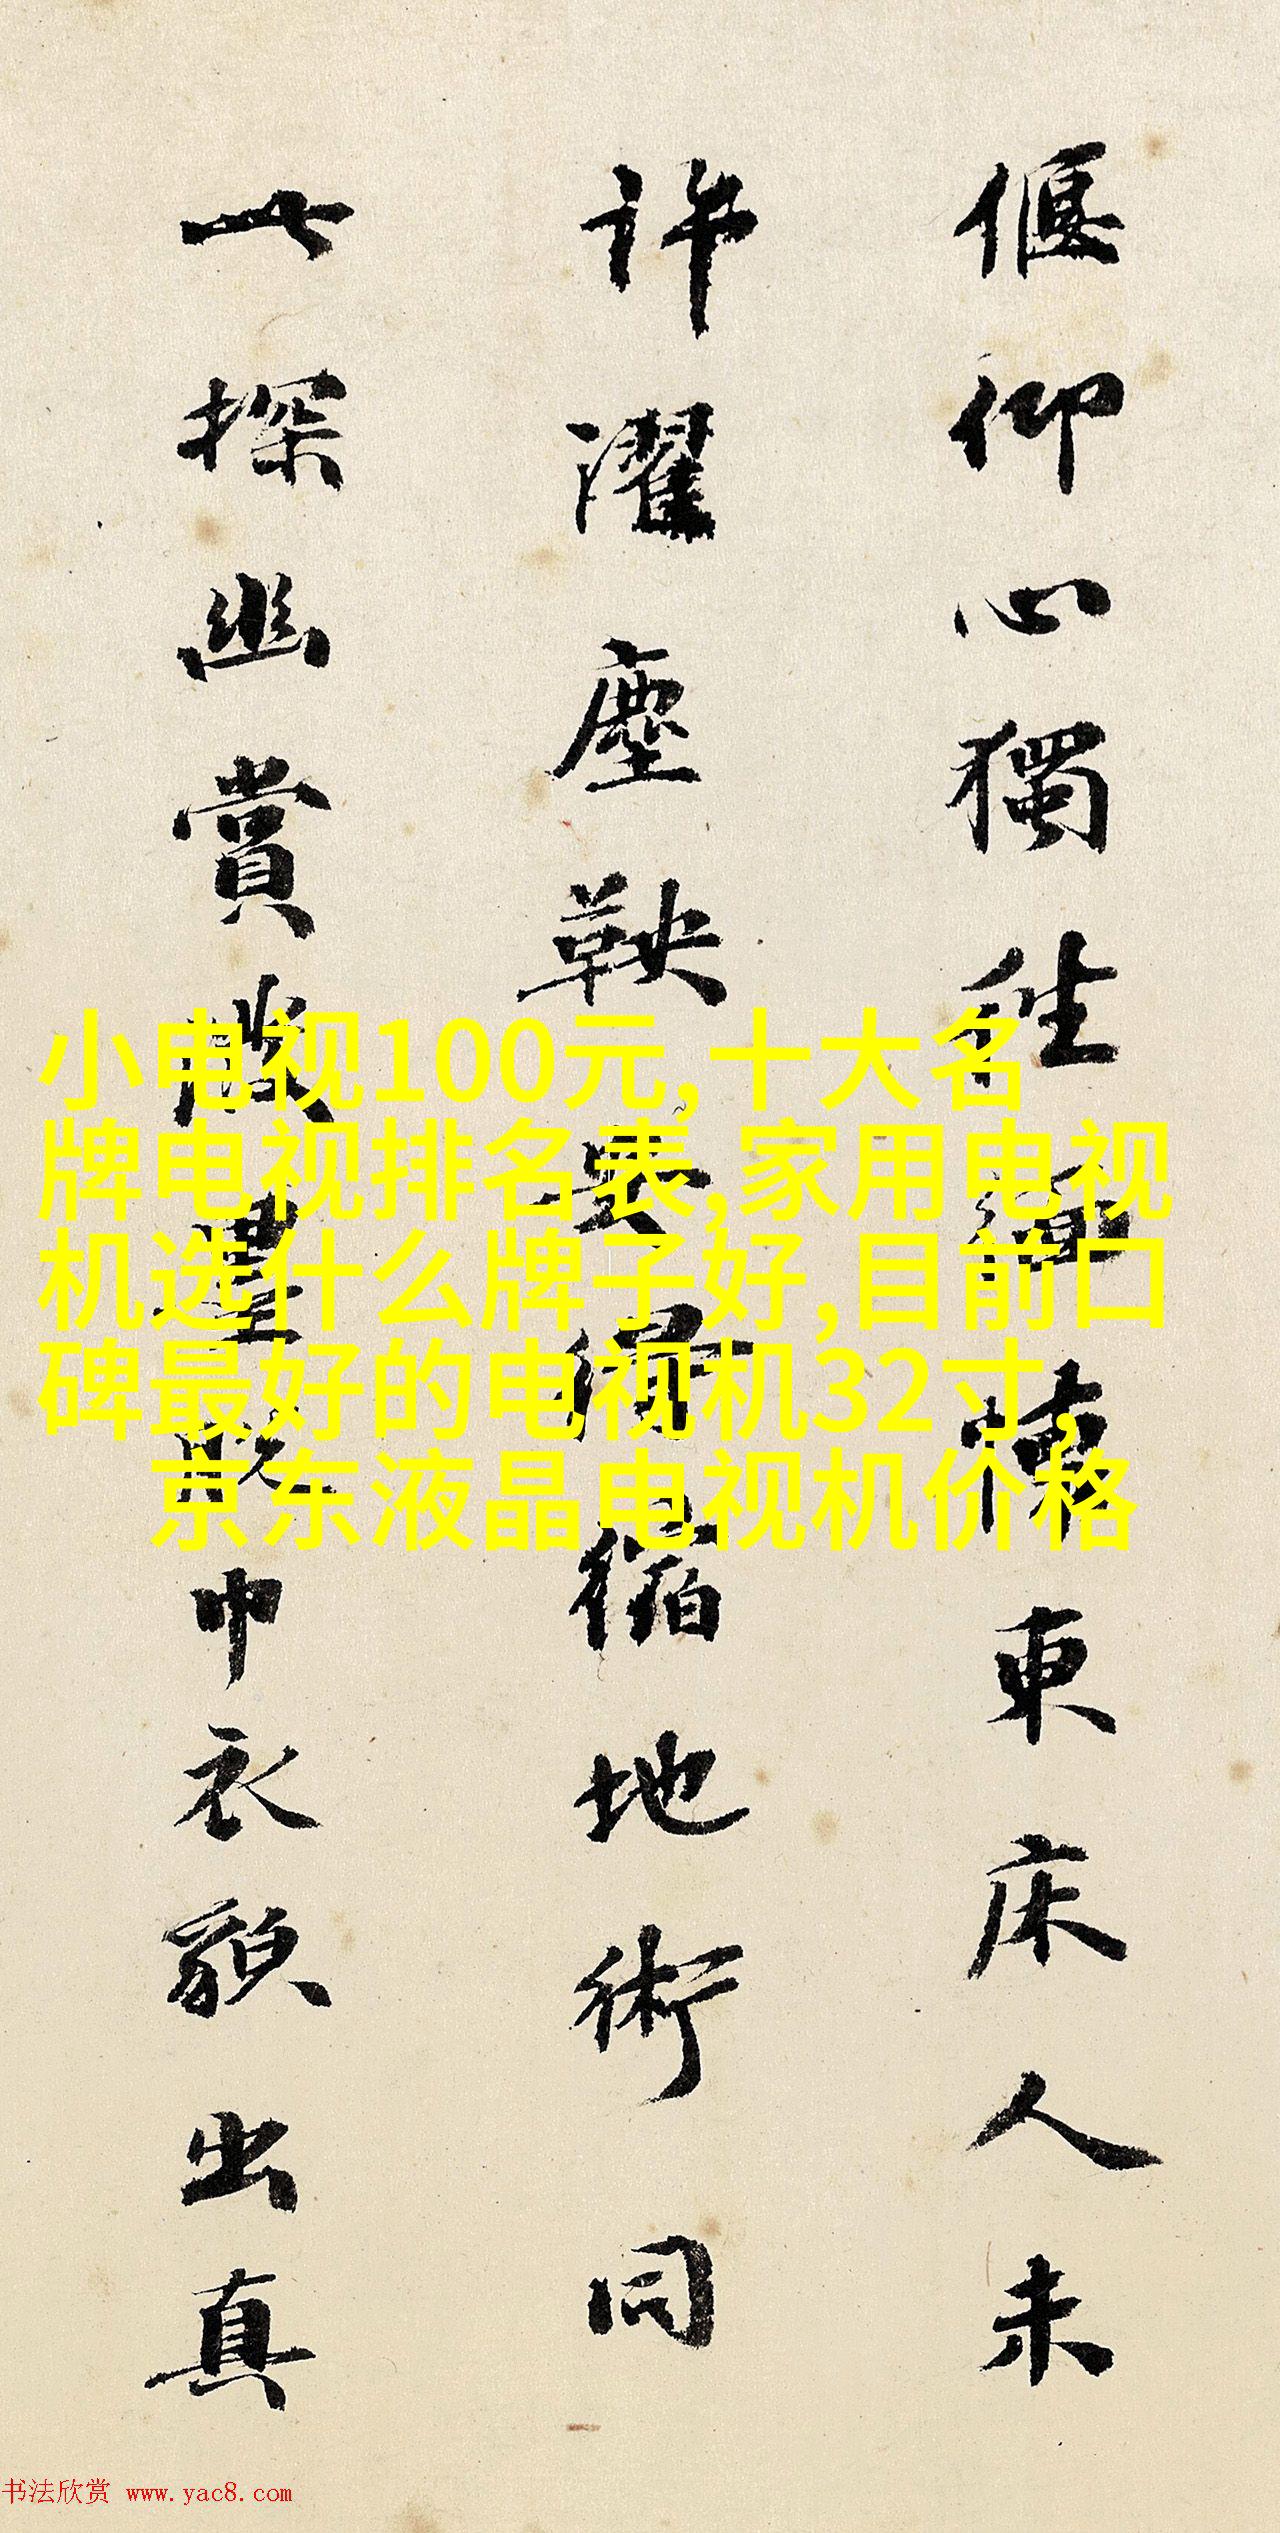 偃仰心獨往徘徊東床人未
許濯塵鞅安得縮地術同
此探幽賞散巾衣貌出真
小电视100元,十大名
牌电视排名表,家用电视
机选什么牌子好,目前口
碑最好的电视机32寸,
京东液晶电视机价格
书法欣赏 www.yac8.com